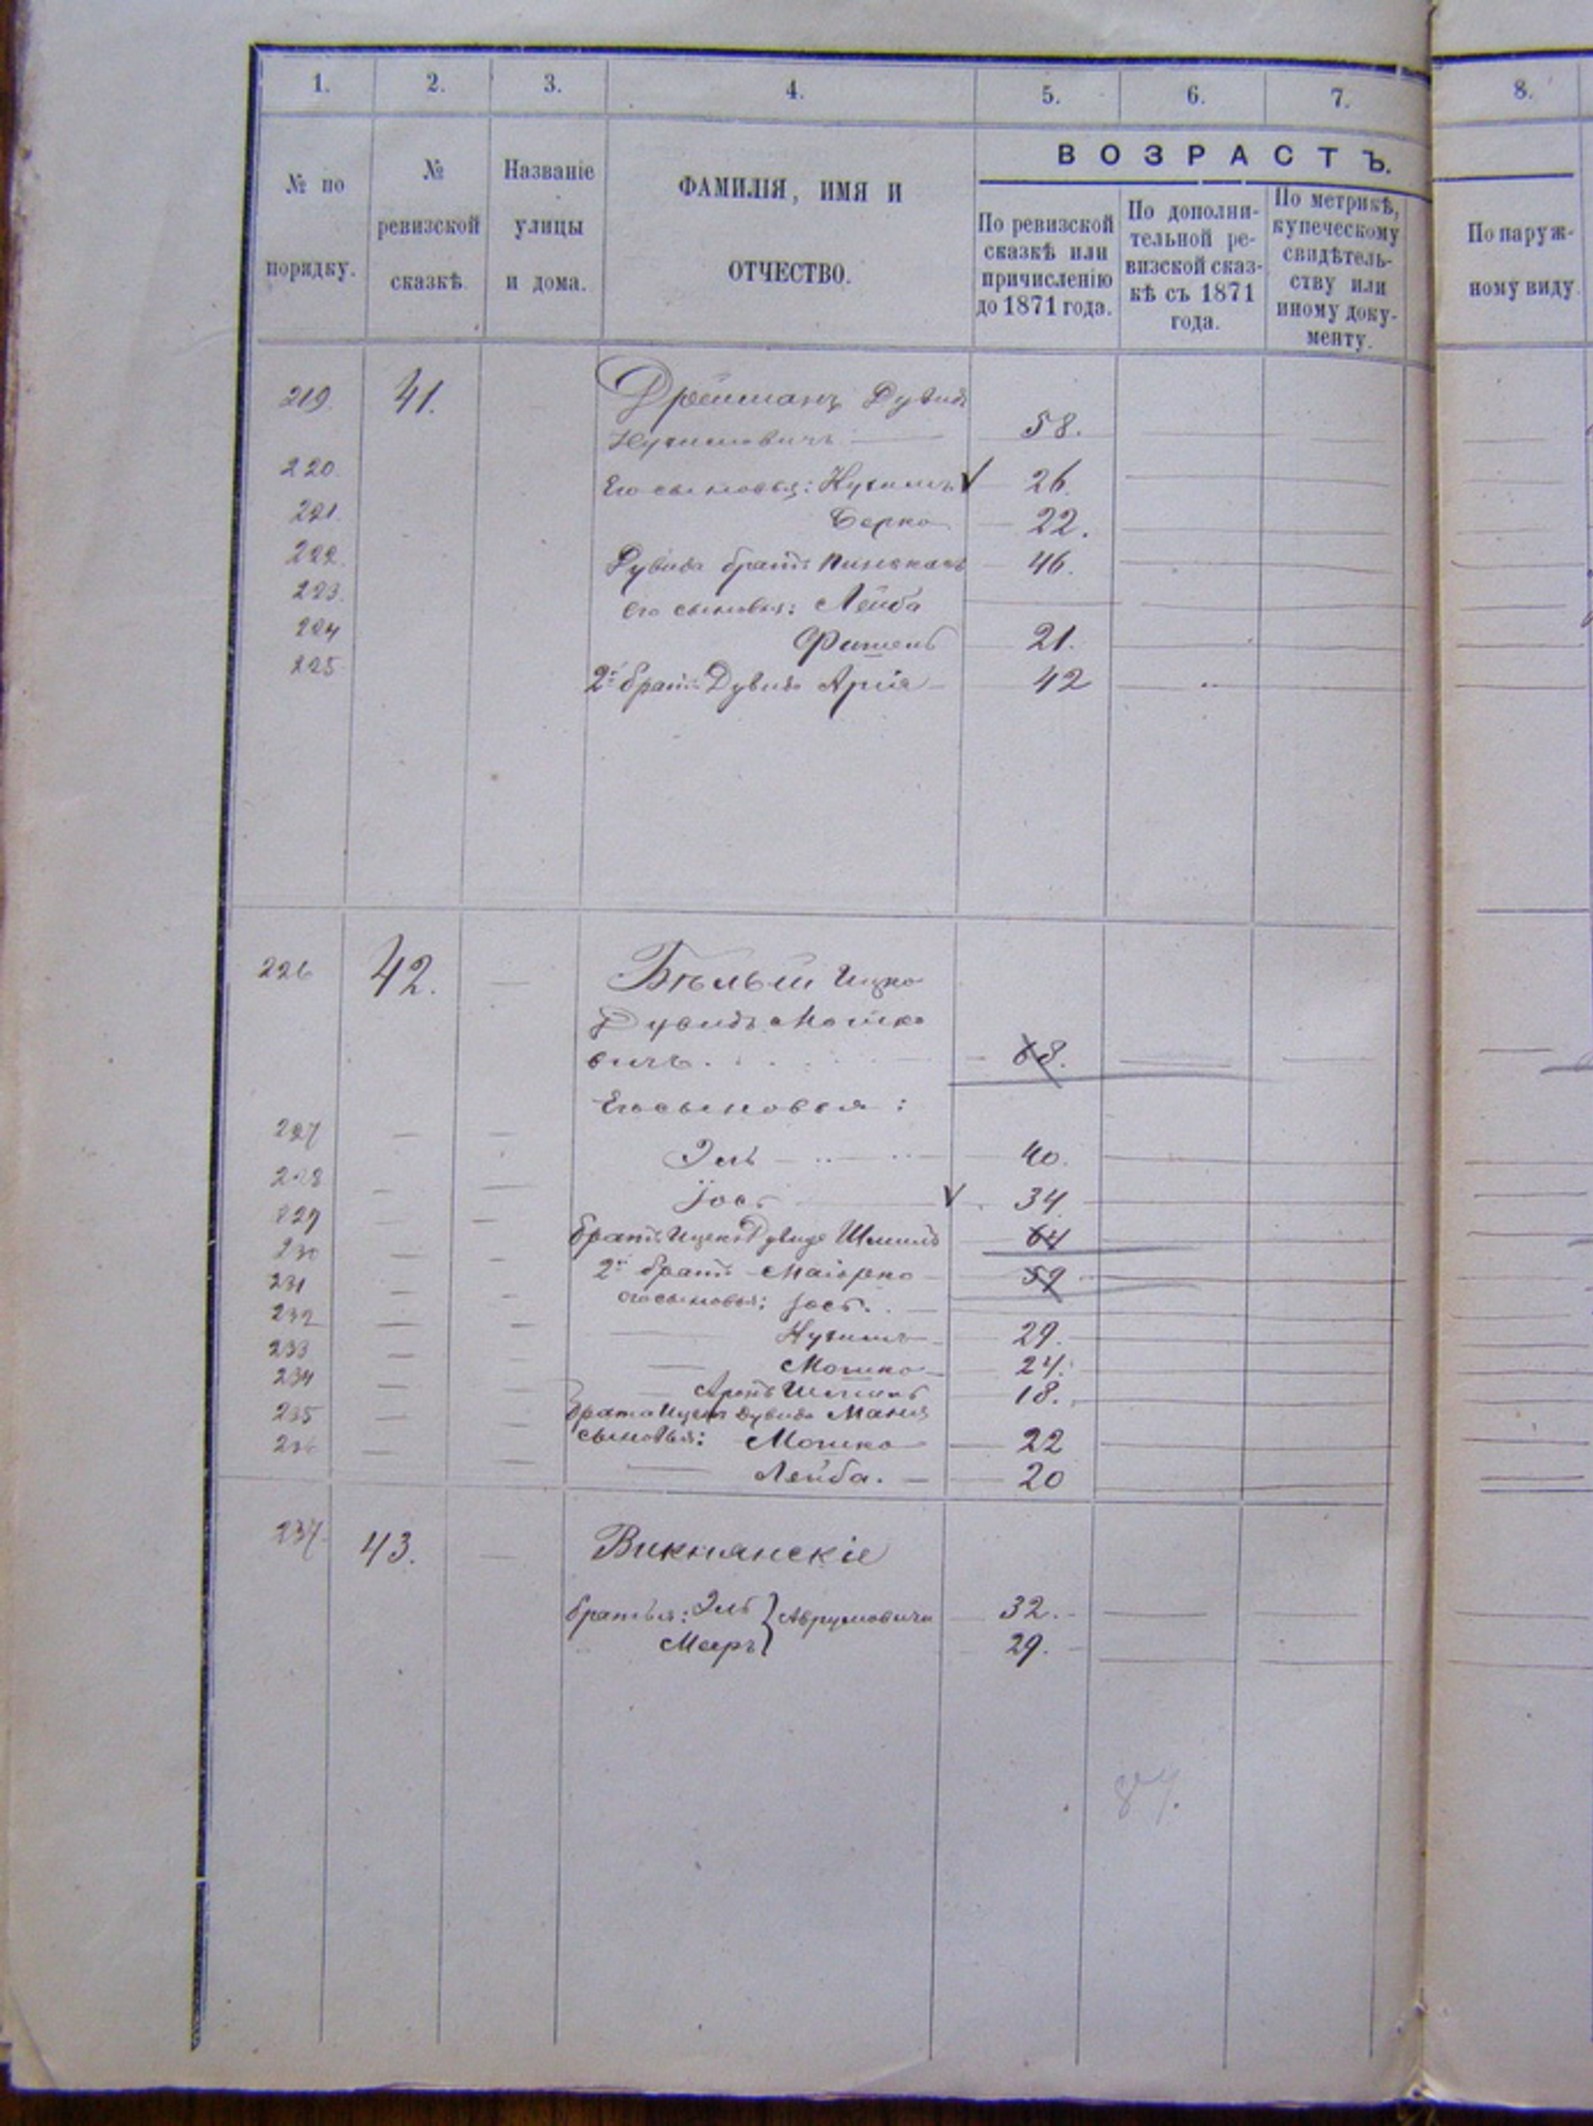 1. 2. 3. 4. 5. 6. 7. 8.
№ по порядку.
№ ревизской сказкѣ.
Названіе улицы и дома.
ФАМИЛІЯ, ИМЯ И ОТЧЕСТВО.
ВОЗРАСТЪ.
По ревизской сказкѣ или причисленію до 1871 года.
По дополнительной ревизской сказкѣ съ 1871 года.
По метрикѣ, купеческому свидѣтельству или иному документу.
По наружному виду.
219. 41. Дрейманъ Дувидъ
Нухимовичъ 58.
220. Его сыновья: Нухимъ √ 26.
221. Берко 22.
222. Дувида братъ Пинькасъ 46.
223. его сыновья: Лейба
224 21.
225 2й братъ Дувида Арія 42
226 42. Бѣлый Ицко
Дувидъ Мошко
вичъ. 68.
Его сыновья:
227 Эль 40.
228 Іось √ 34.
229 братъ Ицко Дувида Шмиль 64
230 2й братъ Маіорко 59
231 его сыновья: Іось.
232 Нухимъ 29.
233 Мошко 24.
234 Аронъ Шмиль 18.
брата Ицка Дувида
235 сыновья: Мошко 22
236 Лейба. 20
237. 43. Викнянскіе
братья: Эль } Аврумовичи 32.
Мееръ 29.
87.